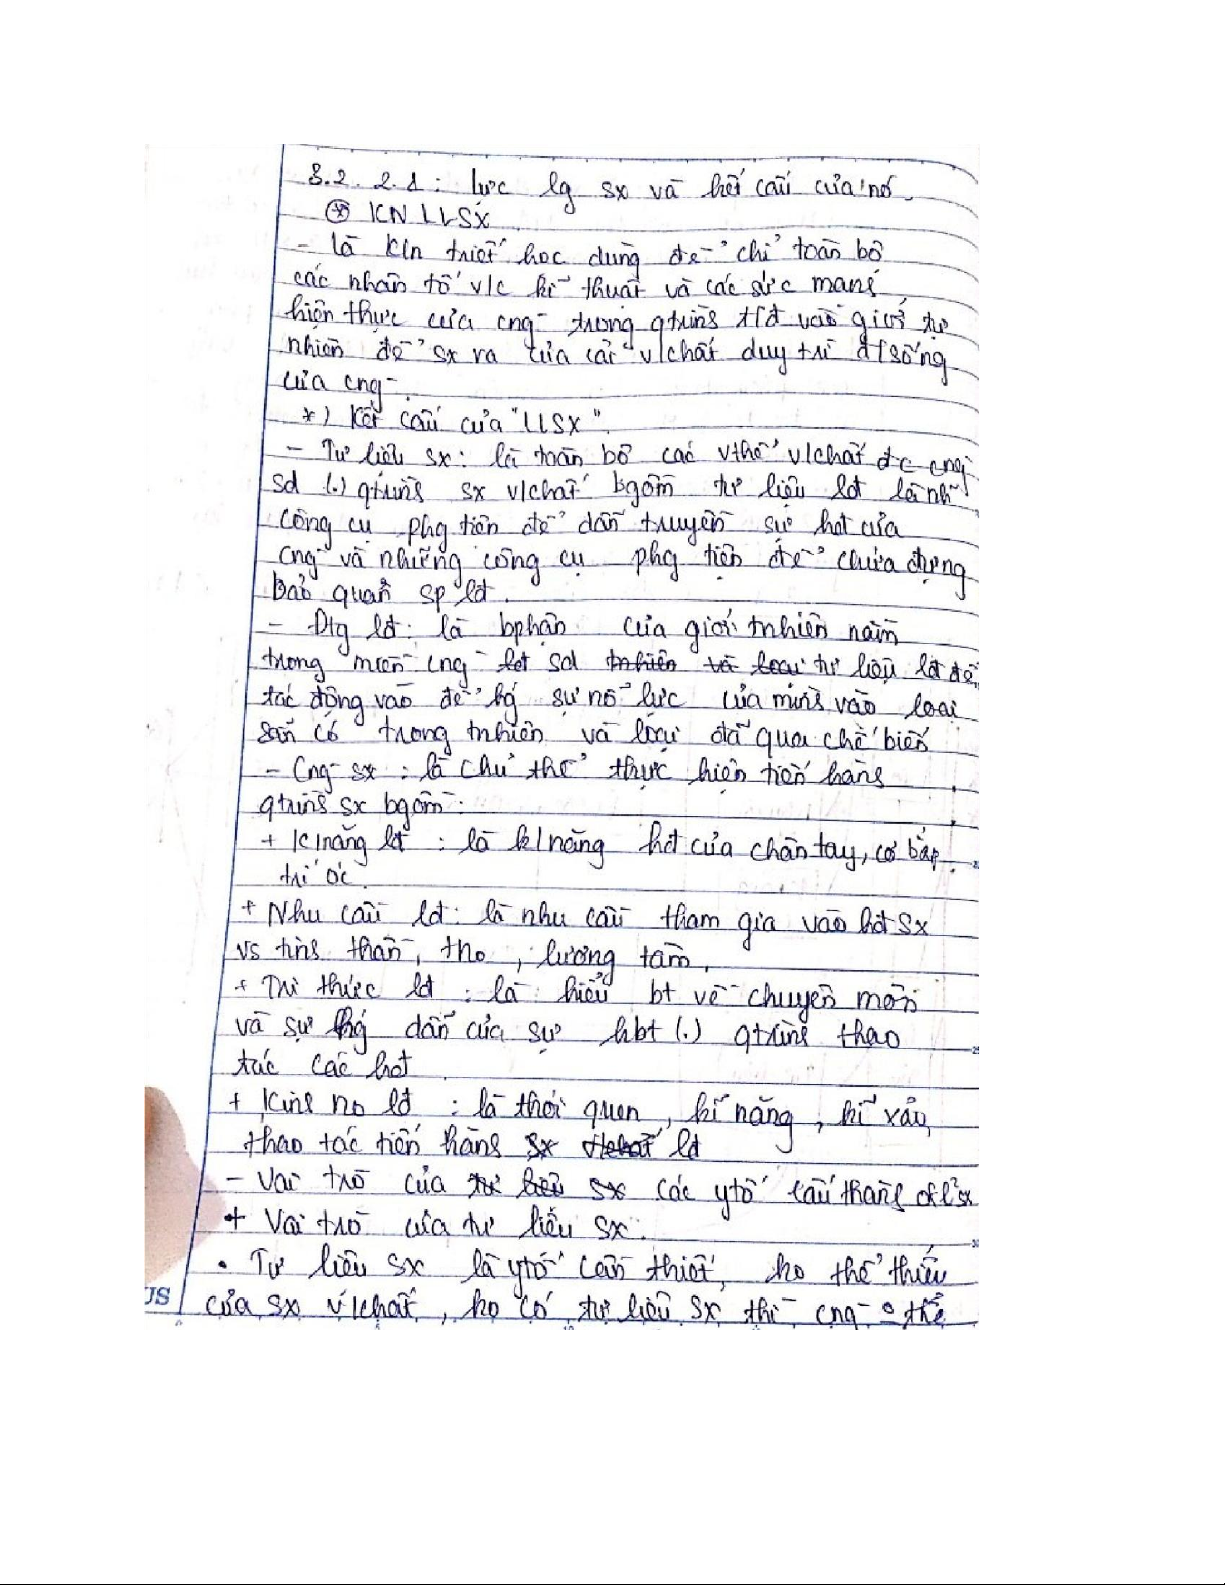 3.2.2.1: Lực lg sx và kết cấu của nó.
⊛ KN LLSX
- Là KN triết học dùng để chỉ toàn bộ
các nhân tố v/c kĩ thuật và các sức mạnh
hiện thực của cng trong qtrình tđ vào giới tự
nhiên để sx ra của cải v/chất duy trì đ/sống
của cng
*) Kết cấu của "LLSX".
- Tư liệu sx: là toàn bộ các vthể v/chất đc cng
sd (.) qtrình sx v/chất bgồm tư liệu lđ là nh~
công cụ phg tiện để dẫn truyền sự hđ của
cng và những công cụ phg tiện để chứa đựng
bảo quản sp lđ.
- Đtg lđ: là bphận của giới tnhiên nằm
trong miền cng sd tư liệu lđ để
tác động vào để hg sự nỗ lực của mình vào loại
sẵn có trong tnhiên và loại đã qua chế biến
- Cng sx: là chủ thể thực hiện tiến hành
qtrình sx bgồm:
+ K/năng lđ: là k/năng hđ của chân tay, cơ bắp,
trí óc.
+ Nhu cầu lđ: là nhu cầu tham gia vào hđ sx
vs tinh thần, tho, lương tâm,
+ Tri thức lđ: là hiểu bt về chuyên môn
và sự hg dẫn của sự hbt (.) qtrình thao
tác các hđ
+ Kinh no lđ: là thói quen, kĩ năng, kĩ xảo,
thao tác tiến hành sx lđ
- Vai trò của các ytố cấu thành
+ Vai trò của tư liệu sx:
• Tư liệu sx là ytố cần thiết, ko thể thiếu
US của sx v/chất, ko có tư liệu sx thì cng thể